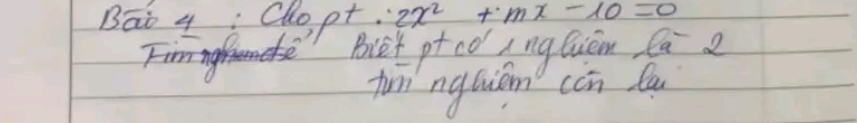 Bài 4 : Cho pt : 2x² + mx - 10 = 0
Biết pt có 1 nghiệm là 2
tìm nghiệm còn lại